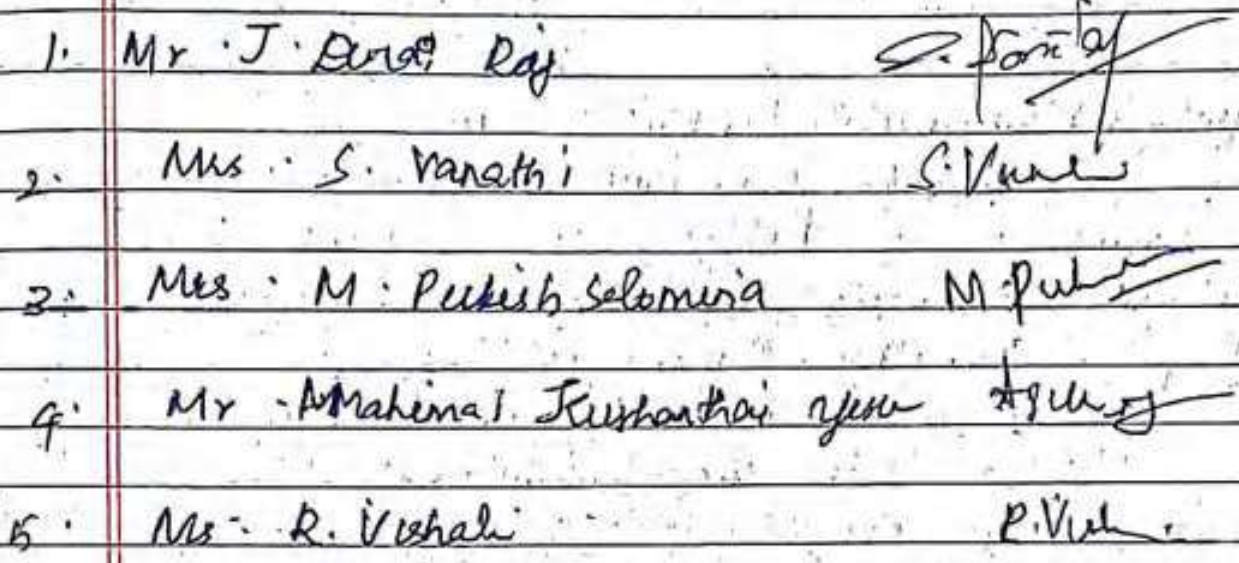 1. Mr. J. Durai Raj
2. Mrs. S. Vanathi S. Vana
3. Mrs. M. Pukish Selomina M. Puk
4. Mr. A. Mahimai Kushanthai yesu
5. Ms. R. Vishali R. Vish